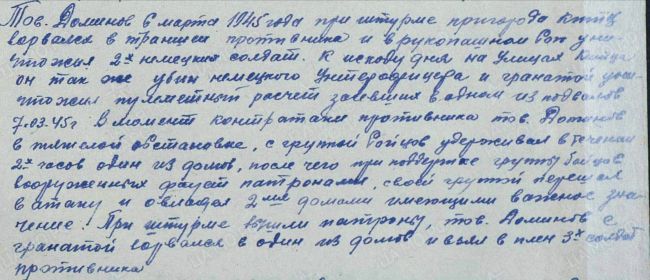 Тов. Доминов 6 марта 1945 года при штурме пригорода
ворвался в траншеи противника и в рукопашном бою уни-
чтожил 2х немецких солдат. К исходу дня на улицах
он так же убил немецкого унтерофицера и гранатой уни-
чтожил пулеметный расчет засевший в одном из подвалов
7.03.45г В момент контратаки противника тов. Доминов
в тяжелой обстановке, с группой бойцов удерживал в течении
2х часов один из домов, после чего при поддержке группы бойцов
вооруженных фауст патронами, своей группой перешел
в атаку и овладел 2мя домами имеющими важное зна-
чение. При штурме вышли патроны, тов. Доминов с
гранатой ворвался в один из домов и взял в плен 3х солдат
противника